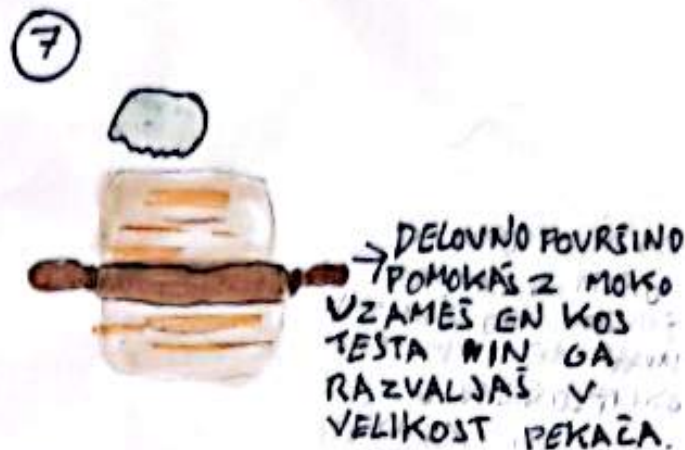 7
→ DELOVNO POVRŠINO
POMOKAŠ Z MOKO
VZAMEŠ EN KOS
TESTA IN GA
RAZVALJAŠ V
VELIKOST PEKAČA.